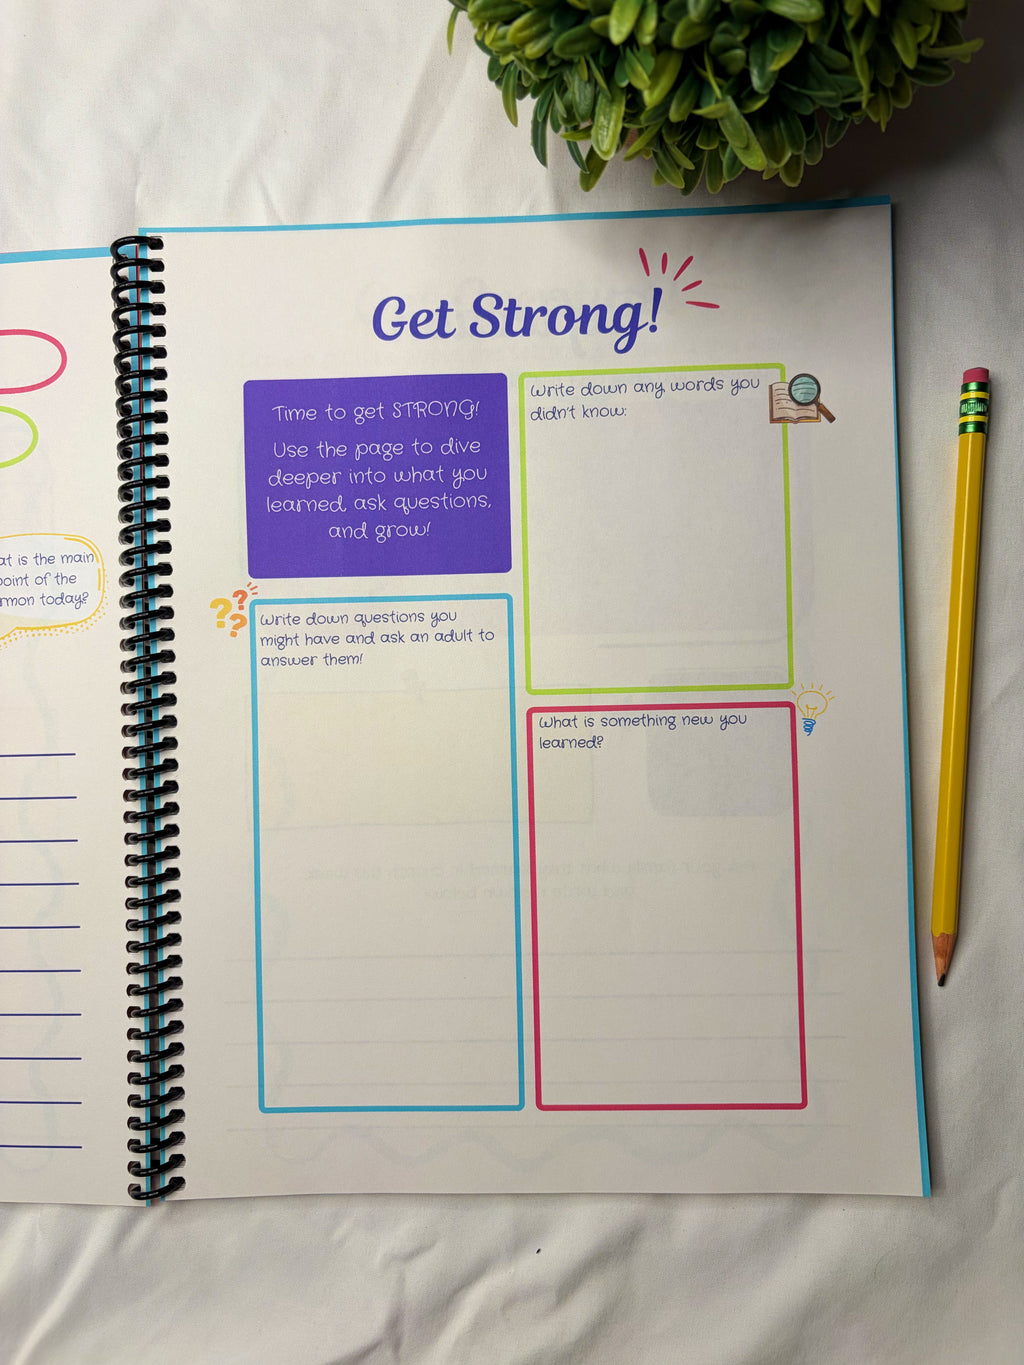 Get Strong!
Time to get STRONG!
Use the page to dive
deeper into what you
learned, ask questions,
and grow!
Write down any words you
didn't know:
Write down questions you
might have and ask an adult to
answer them!
What is something new you
learned?
at is the main
point of the
rmon today?